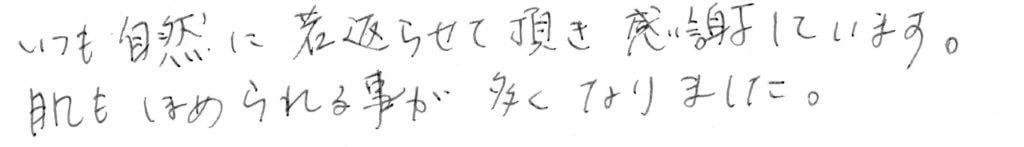 いつも自然に若返らせて頂き感謝しています。
肌もほめられる事が多くなりました。